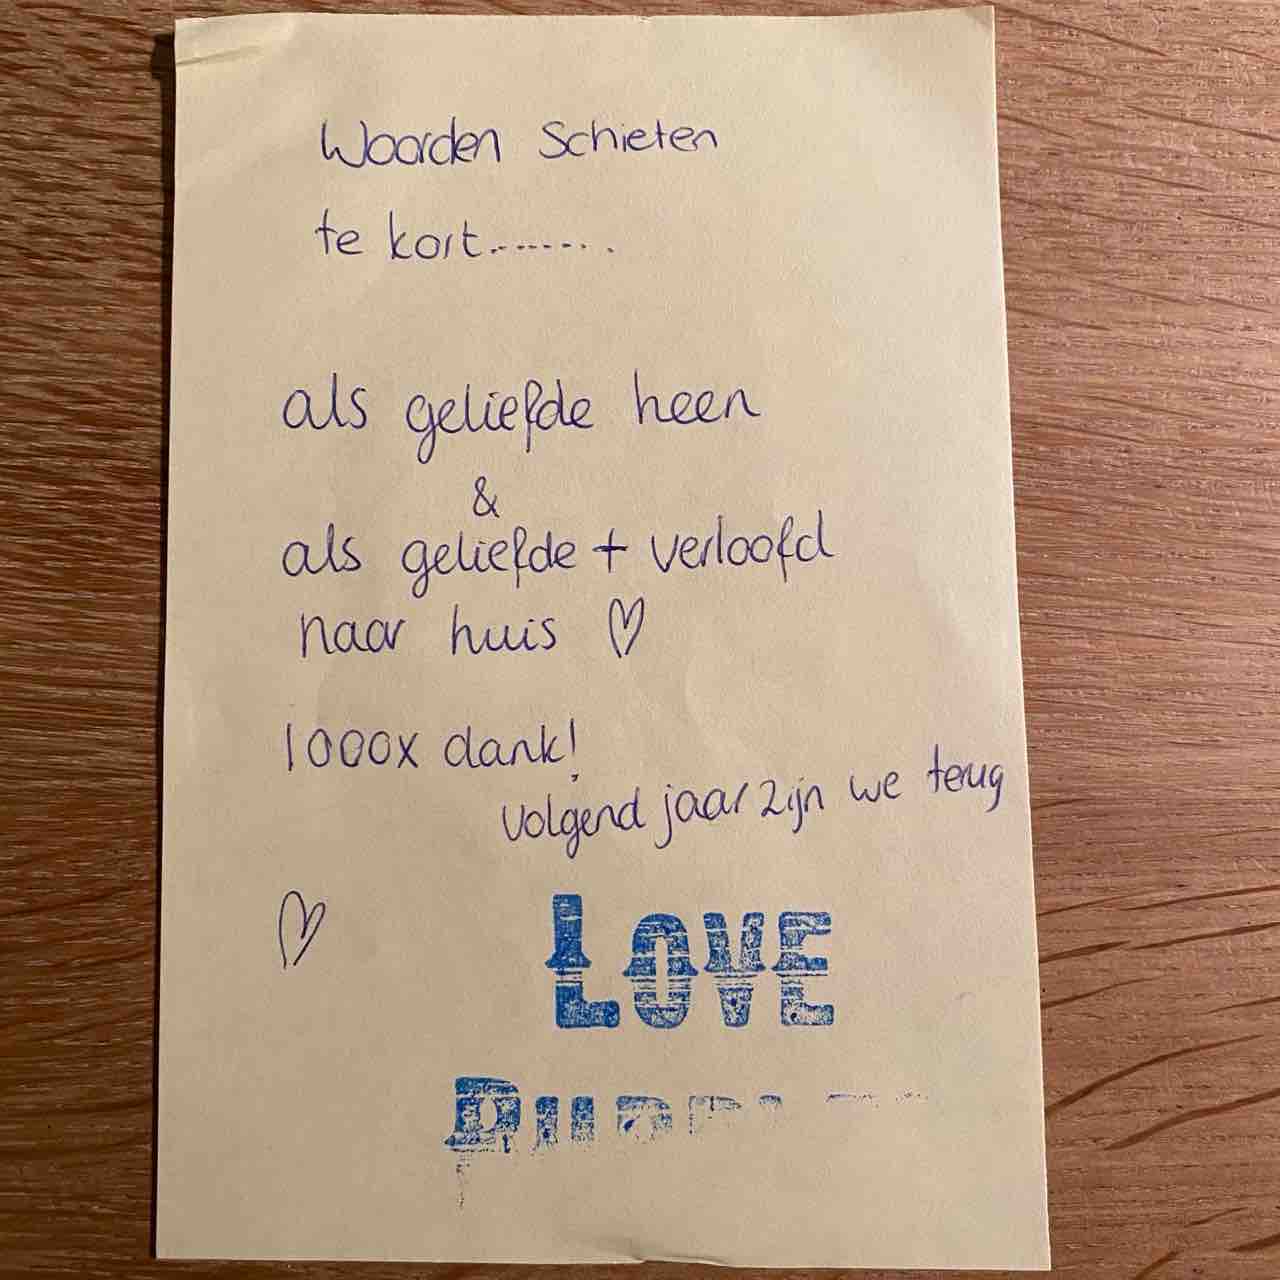 Woorden Schieten
te kort........
als geliefde heen
&
als geliefde + verloofd
naar huis ♡
1000x dank!
volgend jaar zijn we terug
♡
LOVE